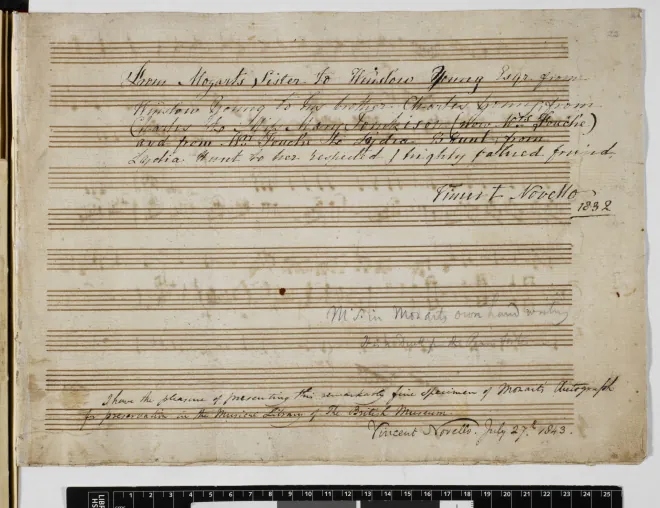 From Mozart's Sister to Winslow Young Esqr. from
Winslow Young to his brother Charles Young, from
Charles to Miss Mary Tomkison (now Mrs
and from Mrs to Lydia B Hunt from
Lydia Hunt to her respected & highly valued friend
Vincent Novello
1832
MS in Mozarts own hand writing
I have the pleasure of presenting this remarkably fine specimen of Mozart's Autograph
for preservation in the Musical Library of The British Museum.
Vincent Novello. July 27th 1843.
1 2 3 4 5 6 7 8 9 10 11 12 13 14 15 16 17 18 19 20 21 22 23 24 25